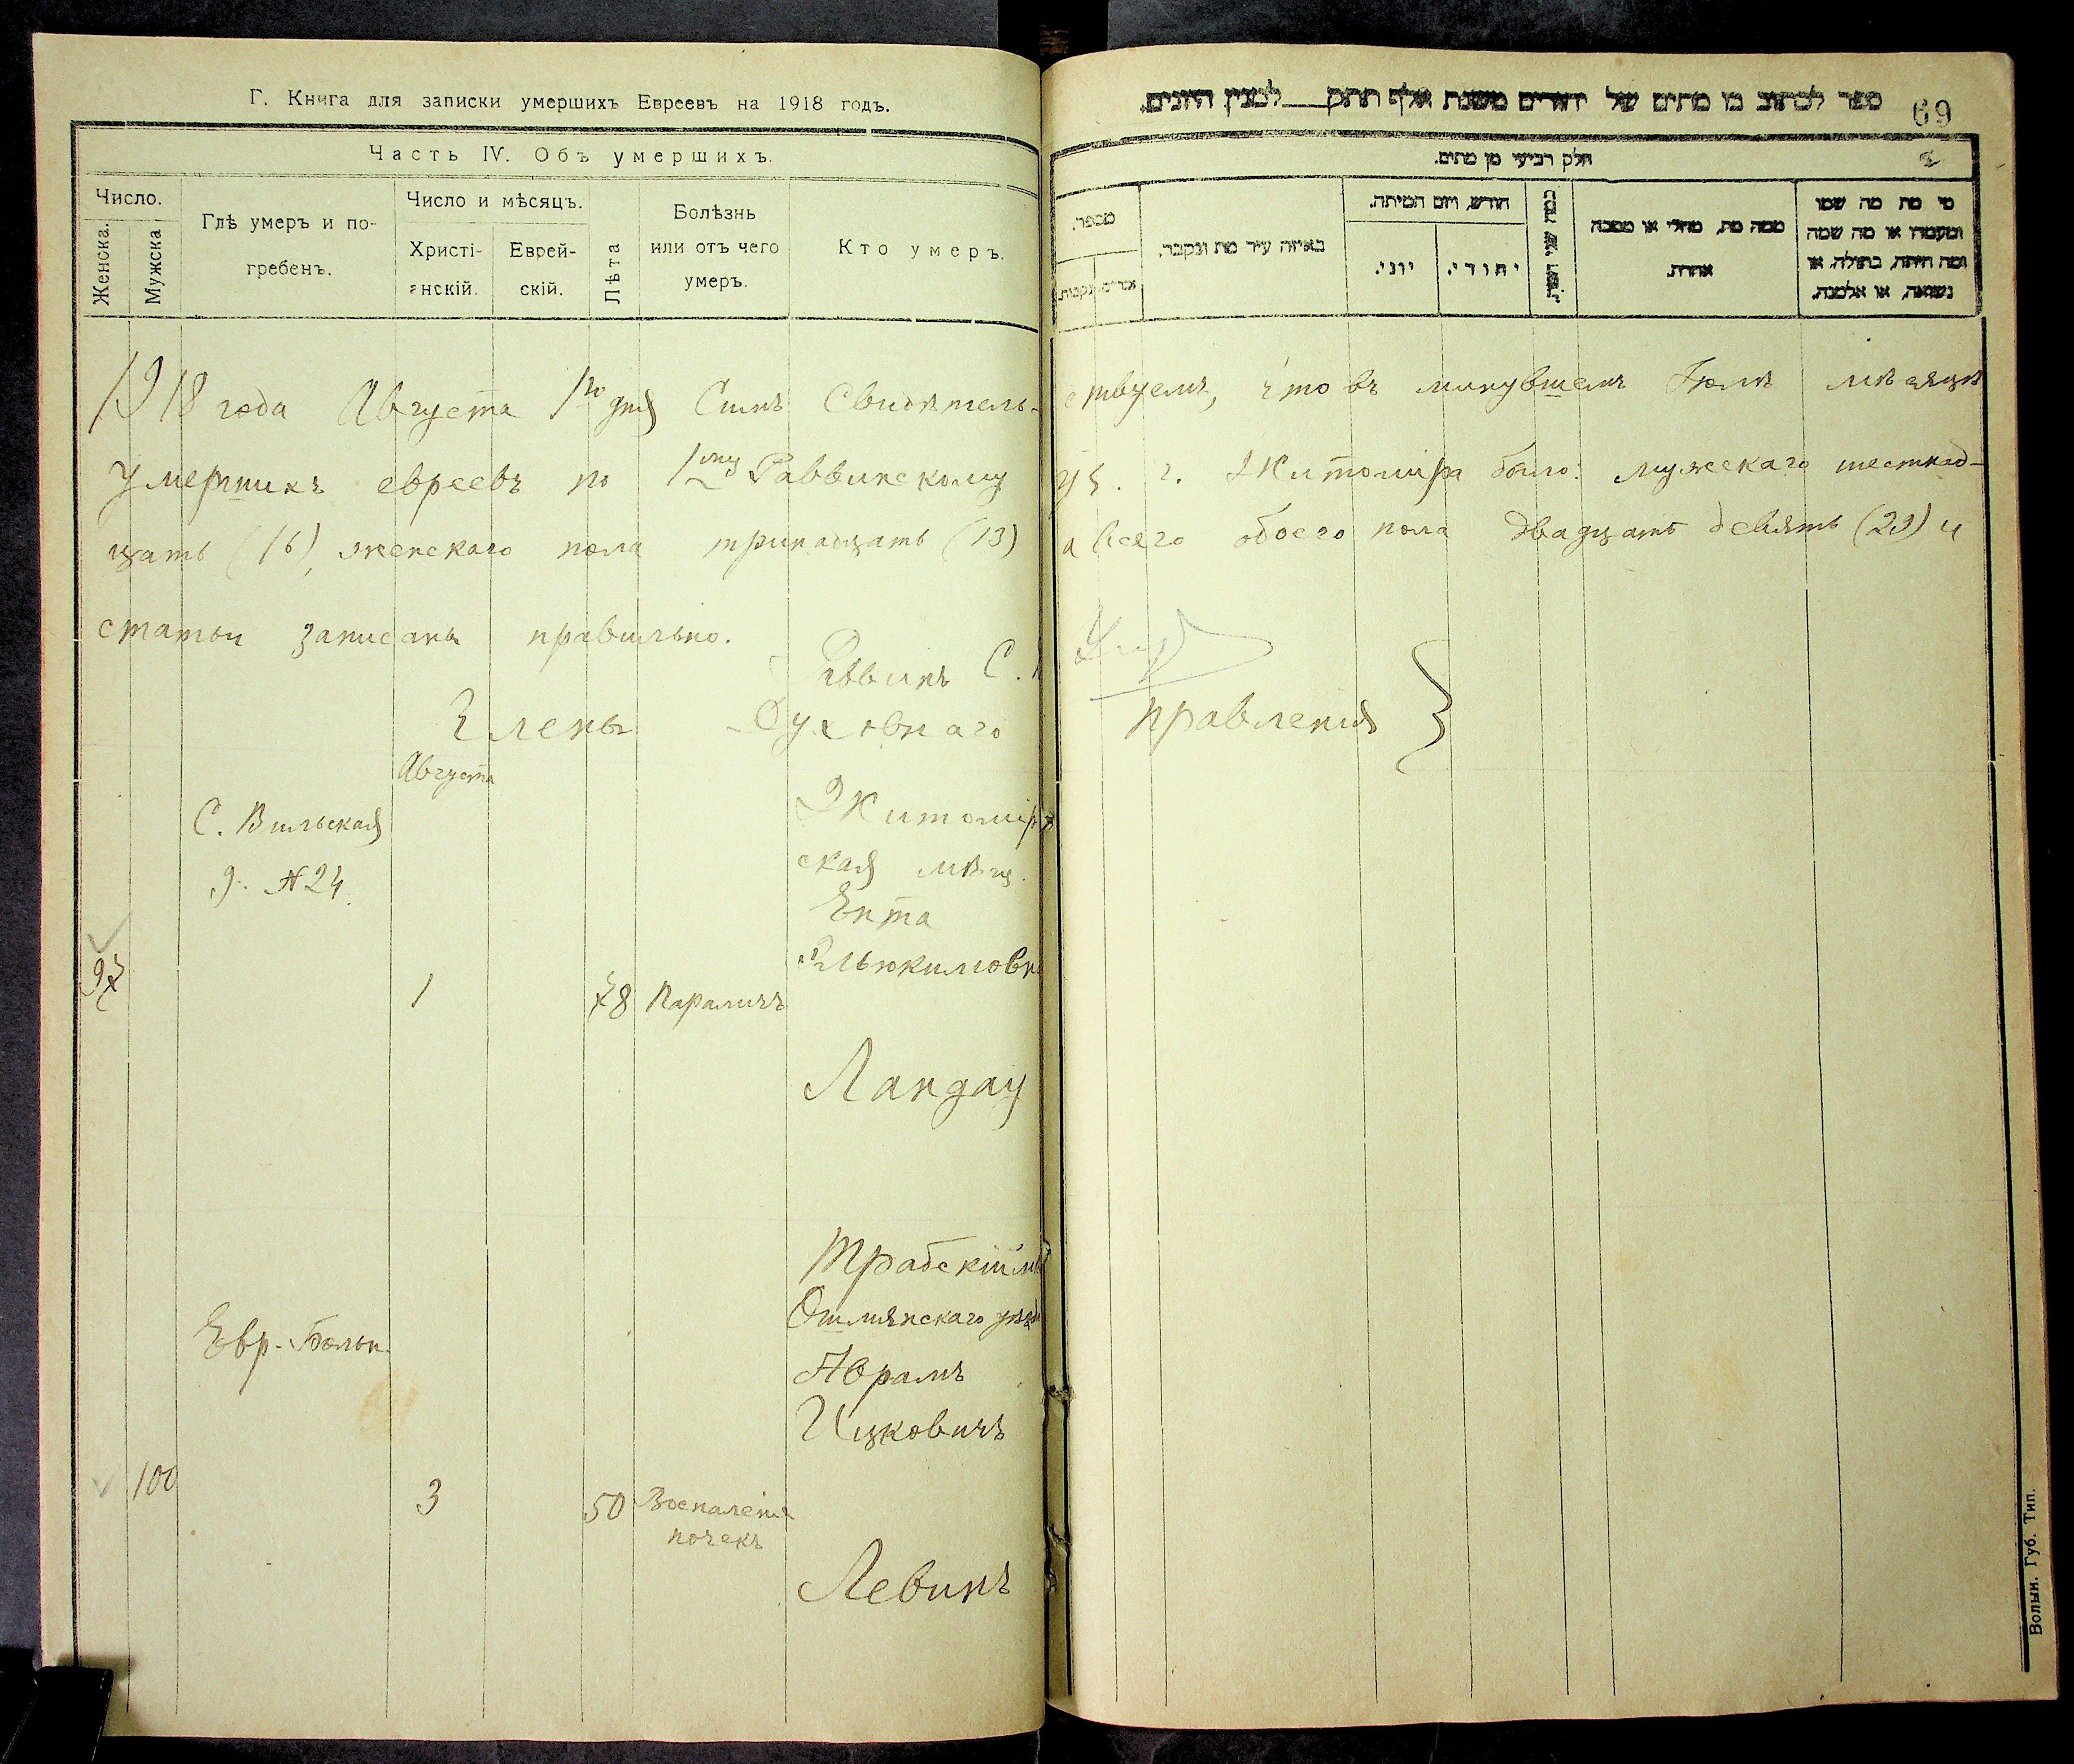 Г. Книга для записки умершихъ Евреевъ на 1918 годъ.
Часть IV. Объ умершихъ.
Число.
Женска.
Мужска
Гдѣ умеръ и по-
гребенъ.
Число и мѣсяцъ.
Христі-
анскій.
Еврей-
скій.
Лѣта
Болѣзнь
или отъ чего
умеръ.
Кто умеръ.
ספר לכתוב בו מתים של יהודים משנת אלף תתק לטנין היונים.
69
חלק רביעי מן מתים.
מספר.
באיזה עיר מת ונקבר.
חודש, ויום המיתה.
יוני.
יהודי.
ממה מת, מחלי או מסבה
אחרת.
מי מת מה שמו
ומעמדו או מה שמה
ומה היתה, בתולה, או
נשואה, או אלמנה.
1918 года Августа 1го дня Симъ Свидѣтель-
ствуемъ, что въ минувшемъ Іюлѣ мѣсяцѣ
умершихъ евреевъ по 1му Раввинскому
уч. г. Житомира было: мужскаго шестнад-
цать (16), женскаго пола тринадцать (13)
а всего обоего пола двадцать девять (29) и
статьи записаны правильно.
Раввинъ С.
Члены Духовнаго
правленія }
Августа
С. Вильская
д. №24.
97
1
78
Параличъ
Житомір
ская мѣщ.
Ента
Ландау
Евр. Больн.
100
3
50
Воспаленія
почекъ
Трабскій мѣ
Ошмянскаго уѣзд
Абрамъ
Ицковичъ
Левинъ
Волын. Губ. Тип.